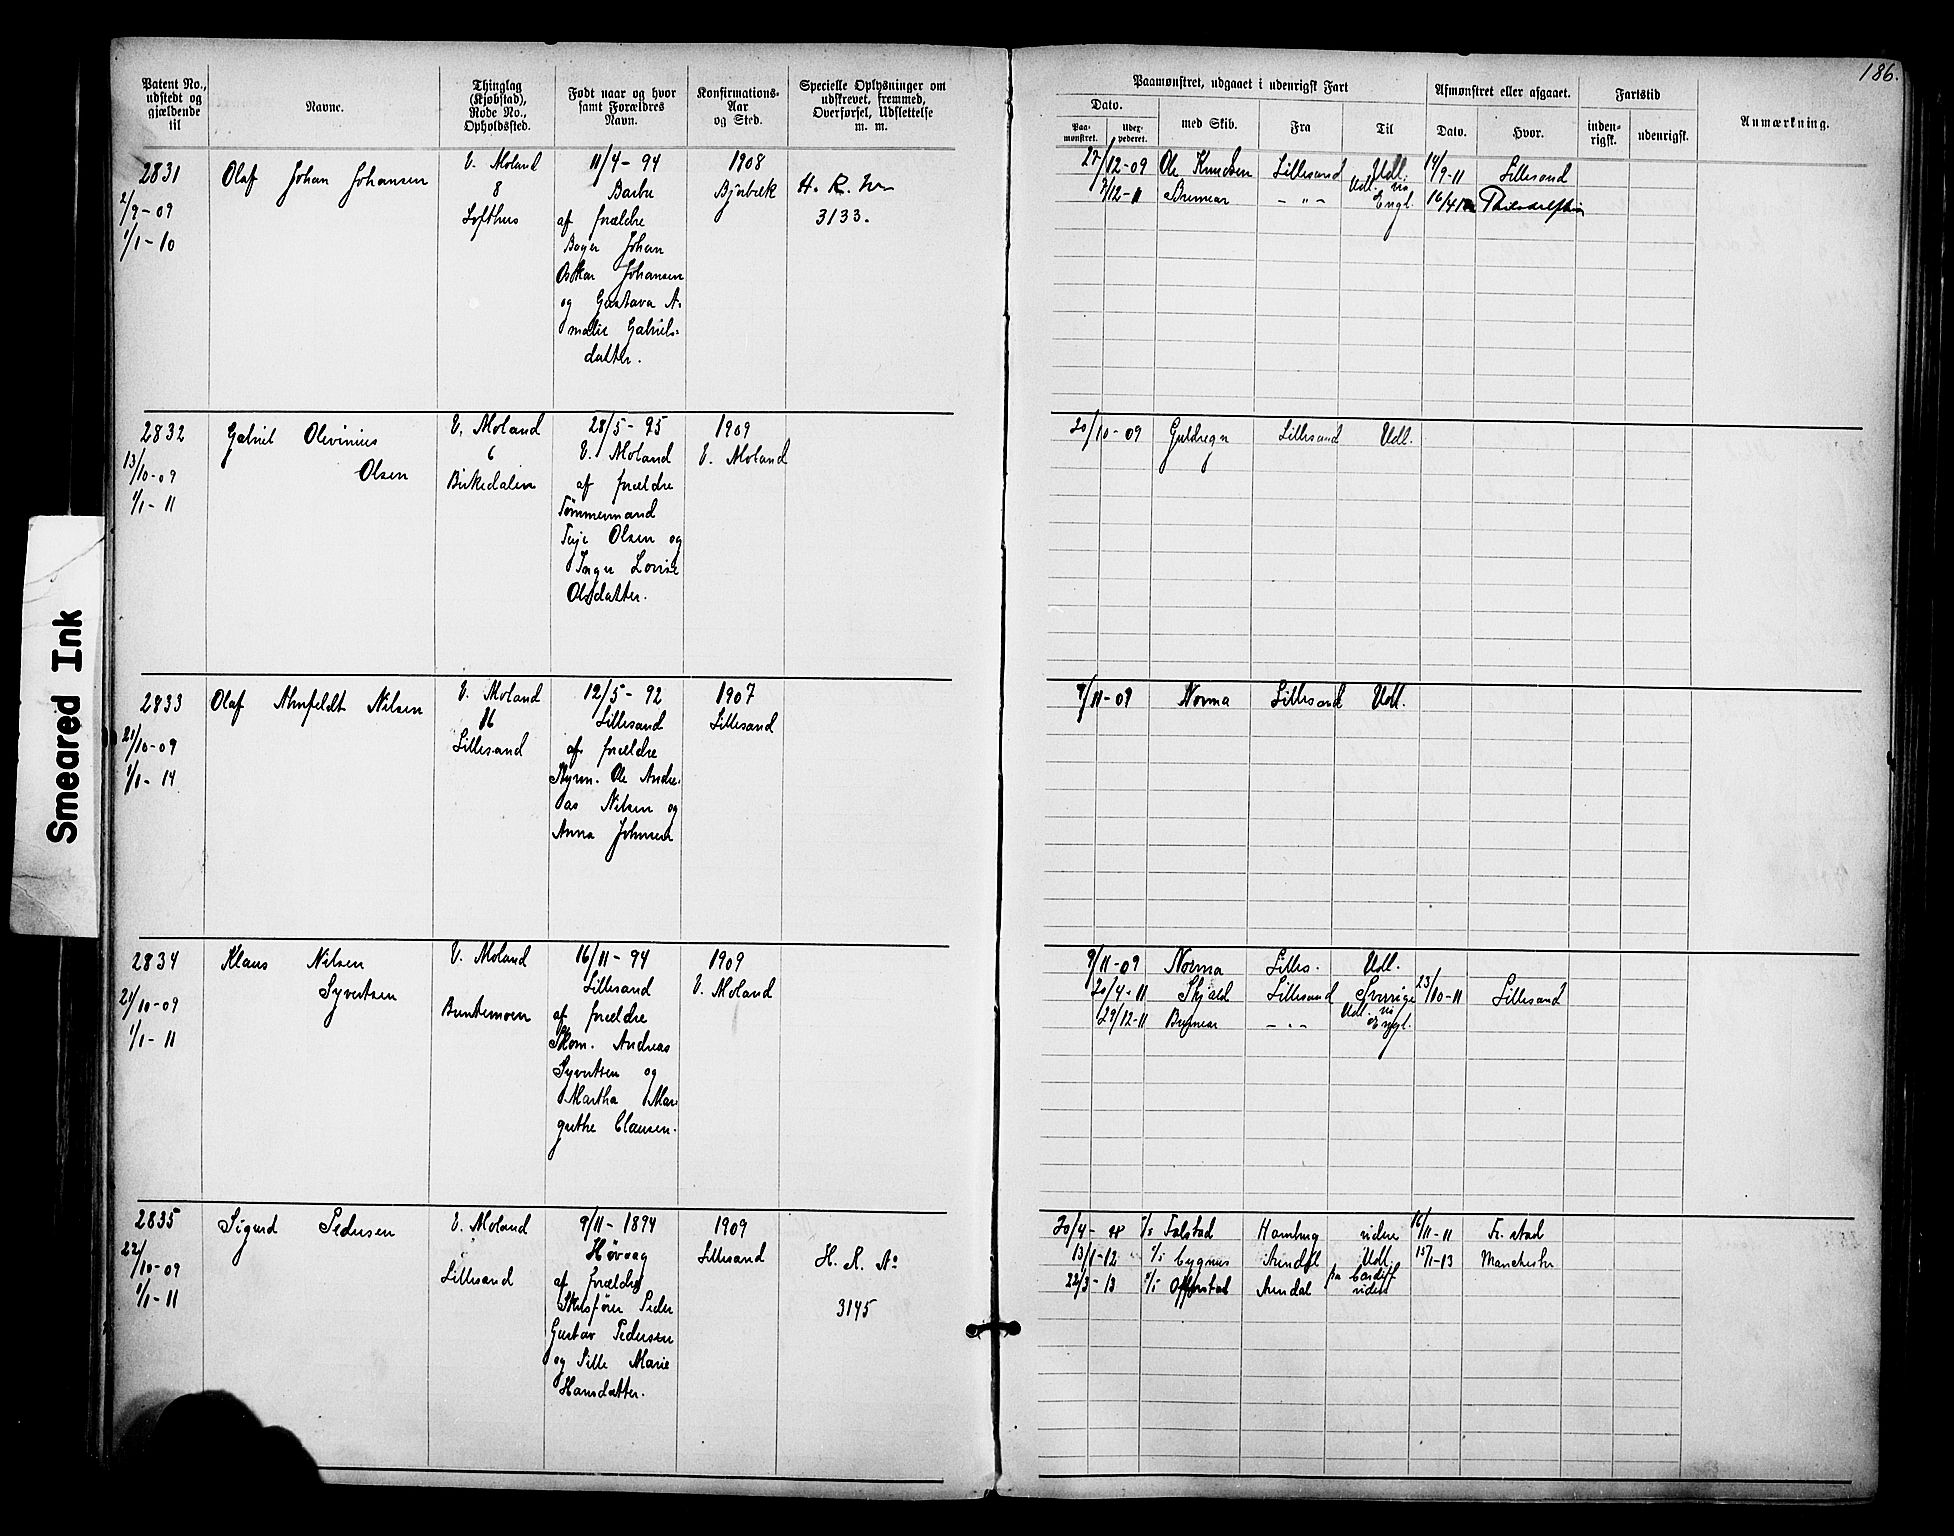 186.
Patent No., udstedt og gjældende til
Navne.
Thinglag (Kjøbstad), Rode No., Opholdssted.
Født naar og hvor samt Forældres Navn.
Konfirmations-Aar og Sted.
Specielle Oplysninger om udskrevet, fremmed, Overførsel, Udslettelse m. m.
Paamønstret, udgaaet i udenrigsk Fart
Dato.
Paa-mønstret.
Udex-pederet.
med Skib.
Fra
Til
Afmønstret eller afgaaet.
Dato.
Hvor.
Fartstid
inden-rigsk.
udenrigsk.
Anmærkning.
2831
2/9-09
1/1-10
Olaf Johan Johansen
V. Moland
8
Lofthus
11/4-94
Barbu
af forældre
Bager Johan
Oskar Johansen
og Gustava A-
malie Gabriels-
datter.
1908
Bjorbæk
H. R. No
3133.
27/12-09 Ole Knudsen Lillesand Udl. 14/9-11 Lillesand
7/12-11 Bremear -"- Udl. via Engl. 16/4 Philadelphia
2832
13/10-09
1/1-11
Gabriel Olevinius
Olsen
V. Moland
6
Birkedalen
28/5-95
V. Moland
af forældre
Tømmermand
Terje Olsen og
Inger Lovise
Olsdatter.
1909
V. Moland
20/10-09 Guldregn Lillesand Udl.
2833
21/10-09
1/1-14
Olaf Arnfeldt Nilsen
V. Moland
16
Lillesand
12/5-92
Lillesand
af forældre
Styrm. Ole Andre-
as Nilsen og
Anna Johnsen
1907
Lillesand
9/11-09 Norma Lillesand Udl.
2834
21/10-09
1/1-11
Klaus Nilsen
Syvertsen
V. Moland
Buntemoen
16/11-94
Lillesand
af forældre
Skom. Andreas
Syvertsen og
Martha Mar-
grethe Clausen.
1909
V. Moland
9/11-09 Norma Lilles. Udl.
20/4-11 Skjald Lillesand Sverige 23/10-11 Lillesand
29/12-11 Bremear -"- Udl. via Engl.
2835
22/10-09
1/1-11
Sigurd Pedersen
V. Moland
Lillesand
9/11-1894
Høvaag
af forældre
Skibsfører Peder
Gustav Pedersen
og Sille Marie
Hansdatter.
1909
Lillesand
H. R. No
3145
20/4- S/S Falstad Hamburg videre 16/11-11 Fr. stad
13/1-12 S/S Cygnus Arendal Udl. 15/1-13 Manchester
22/3-13 S/S Arendal pa Cardiff videre
Smeared Ink